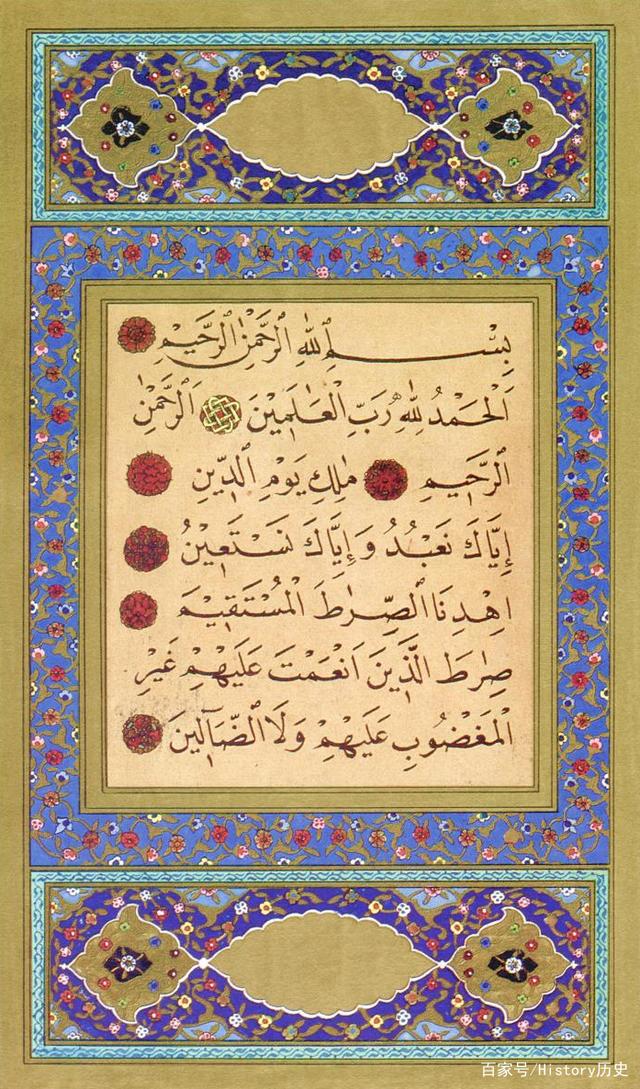 بِسْمِ اللهِ الرَّحْمٰنِ الرَّحِيمِ
اَلْحَمْدُ لِلّٰهِ رَبِّ الْعَالَمِينَ اَلرَّحْمٰنِ
الرَّحِيمِ مٰلِكِ يَوْمِ الدِّينِ
إِيَّاكَ نَعْبُدُ وَإِيَّاكَ نَسْتَعِينُ
اِهْدِنَا الصِّرٰطَ الْمُسْتَقِيمَ
صِرٰطَ الَّذِينَ اَنْعَمْتَ عَلَيْهِمْ غَيْرِ
الْمَغْضُوبِ عَلَيْهِمْ وَلَا الضَّآلِّينَ
百家号/History历史